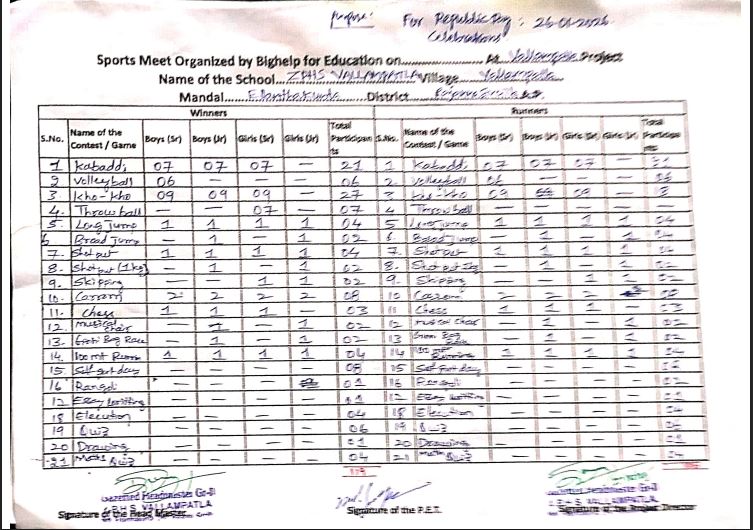 Purpose: For Republic Day : 26-01-2026
Celebrations
Sports Meet Organized by Bighelp for Education on At Vallampatla Project
Name of the School ZPHS VALLAMPATLA Village Vallampatla
Mandal District
Winners Runners
S.No. Name of the Contest / Game Boys (Sr) Boys (Jr) Girls (Sr) Girls (Jr) Total Participants S.No. Name of the Contest / Game Boys (Sr) Boys (Jr) Girls (Sr) Girls (Jr) Total Participants
1 Kabaddi 07 07 07 — 21 1 Kabaddi 07 07 07 — 21
2 Volleyball 06 — — — 06 2 Volleyball 06 — — —
3 Kho-Kho 09 09 09 — 27 3 Kho-Kho 09 09 —
4. Throw ball — — 07 — 07 4 Throw ball — — —
5. Long Jump 1 1 1 1 04 5 Long Jump 1 1 1 1 04
6 Broad Jump — 1 — 1 02 6 Broad Jump — 1 — 1
7. Shot put 1 1 1 1 04 7. Shot put 1 1 1 1 04
8. Shot put (1kg) — 1 — 1 02 8. Shot put — 1 — 1 02
9. Skipping — — 1 1 02 9. Skipping — — 1 1 02
10. Carrom 2 2 2 2 08 10 Carrom 2 2 2
11. Chess 1 1 1 — 03 11 Chess 1 1 1 — 03
12. Musical Chair — 1 — 1 02 12 Musical Chair — 1 — 1 02
13. Bag Race — 1 — 1 02 13 Bag Race — 1 — 1 02
14. 100 mt Running 1 1 1 1 04 14 100 mt Running 1 1 1 1 04
15 Self govt day — — — — 08 15 Self govt day — — — —
16 Rangoli — — — 01 16 Rangoli — — — —
Essay writting — — — — 01 Essay writting — — — —
18 Election — — — — 04 18 Election — — — — 04
19 Quiz — — — — 06 19 Quiz — — — —
20 Drawing — — — — 01 20 Drawing — — — — 01
21 Maths Quiz — — — — 04 21 Maths Quiz — — — — 04
Gazetted Headmaster Gr-II Gazetted Headmaster Gr-II
Z.P.H.S. VALLAMPATLA Z.P.H.S. VALLAMPATLA
Signature of the Head Master Signature of the P.E.T. Signature of the Project Director